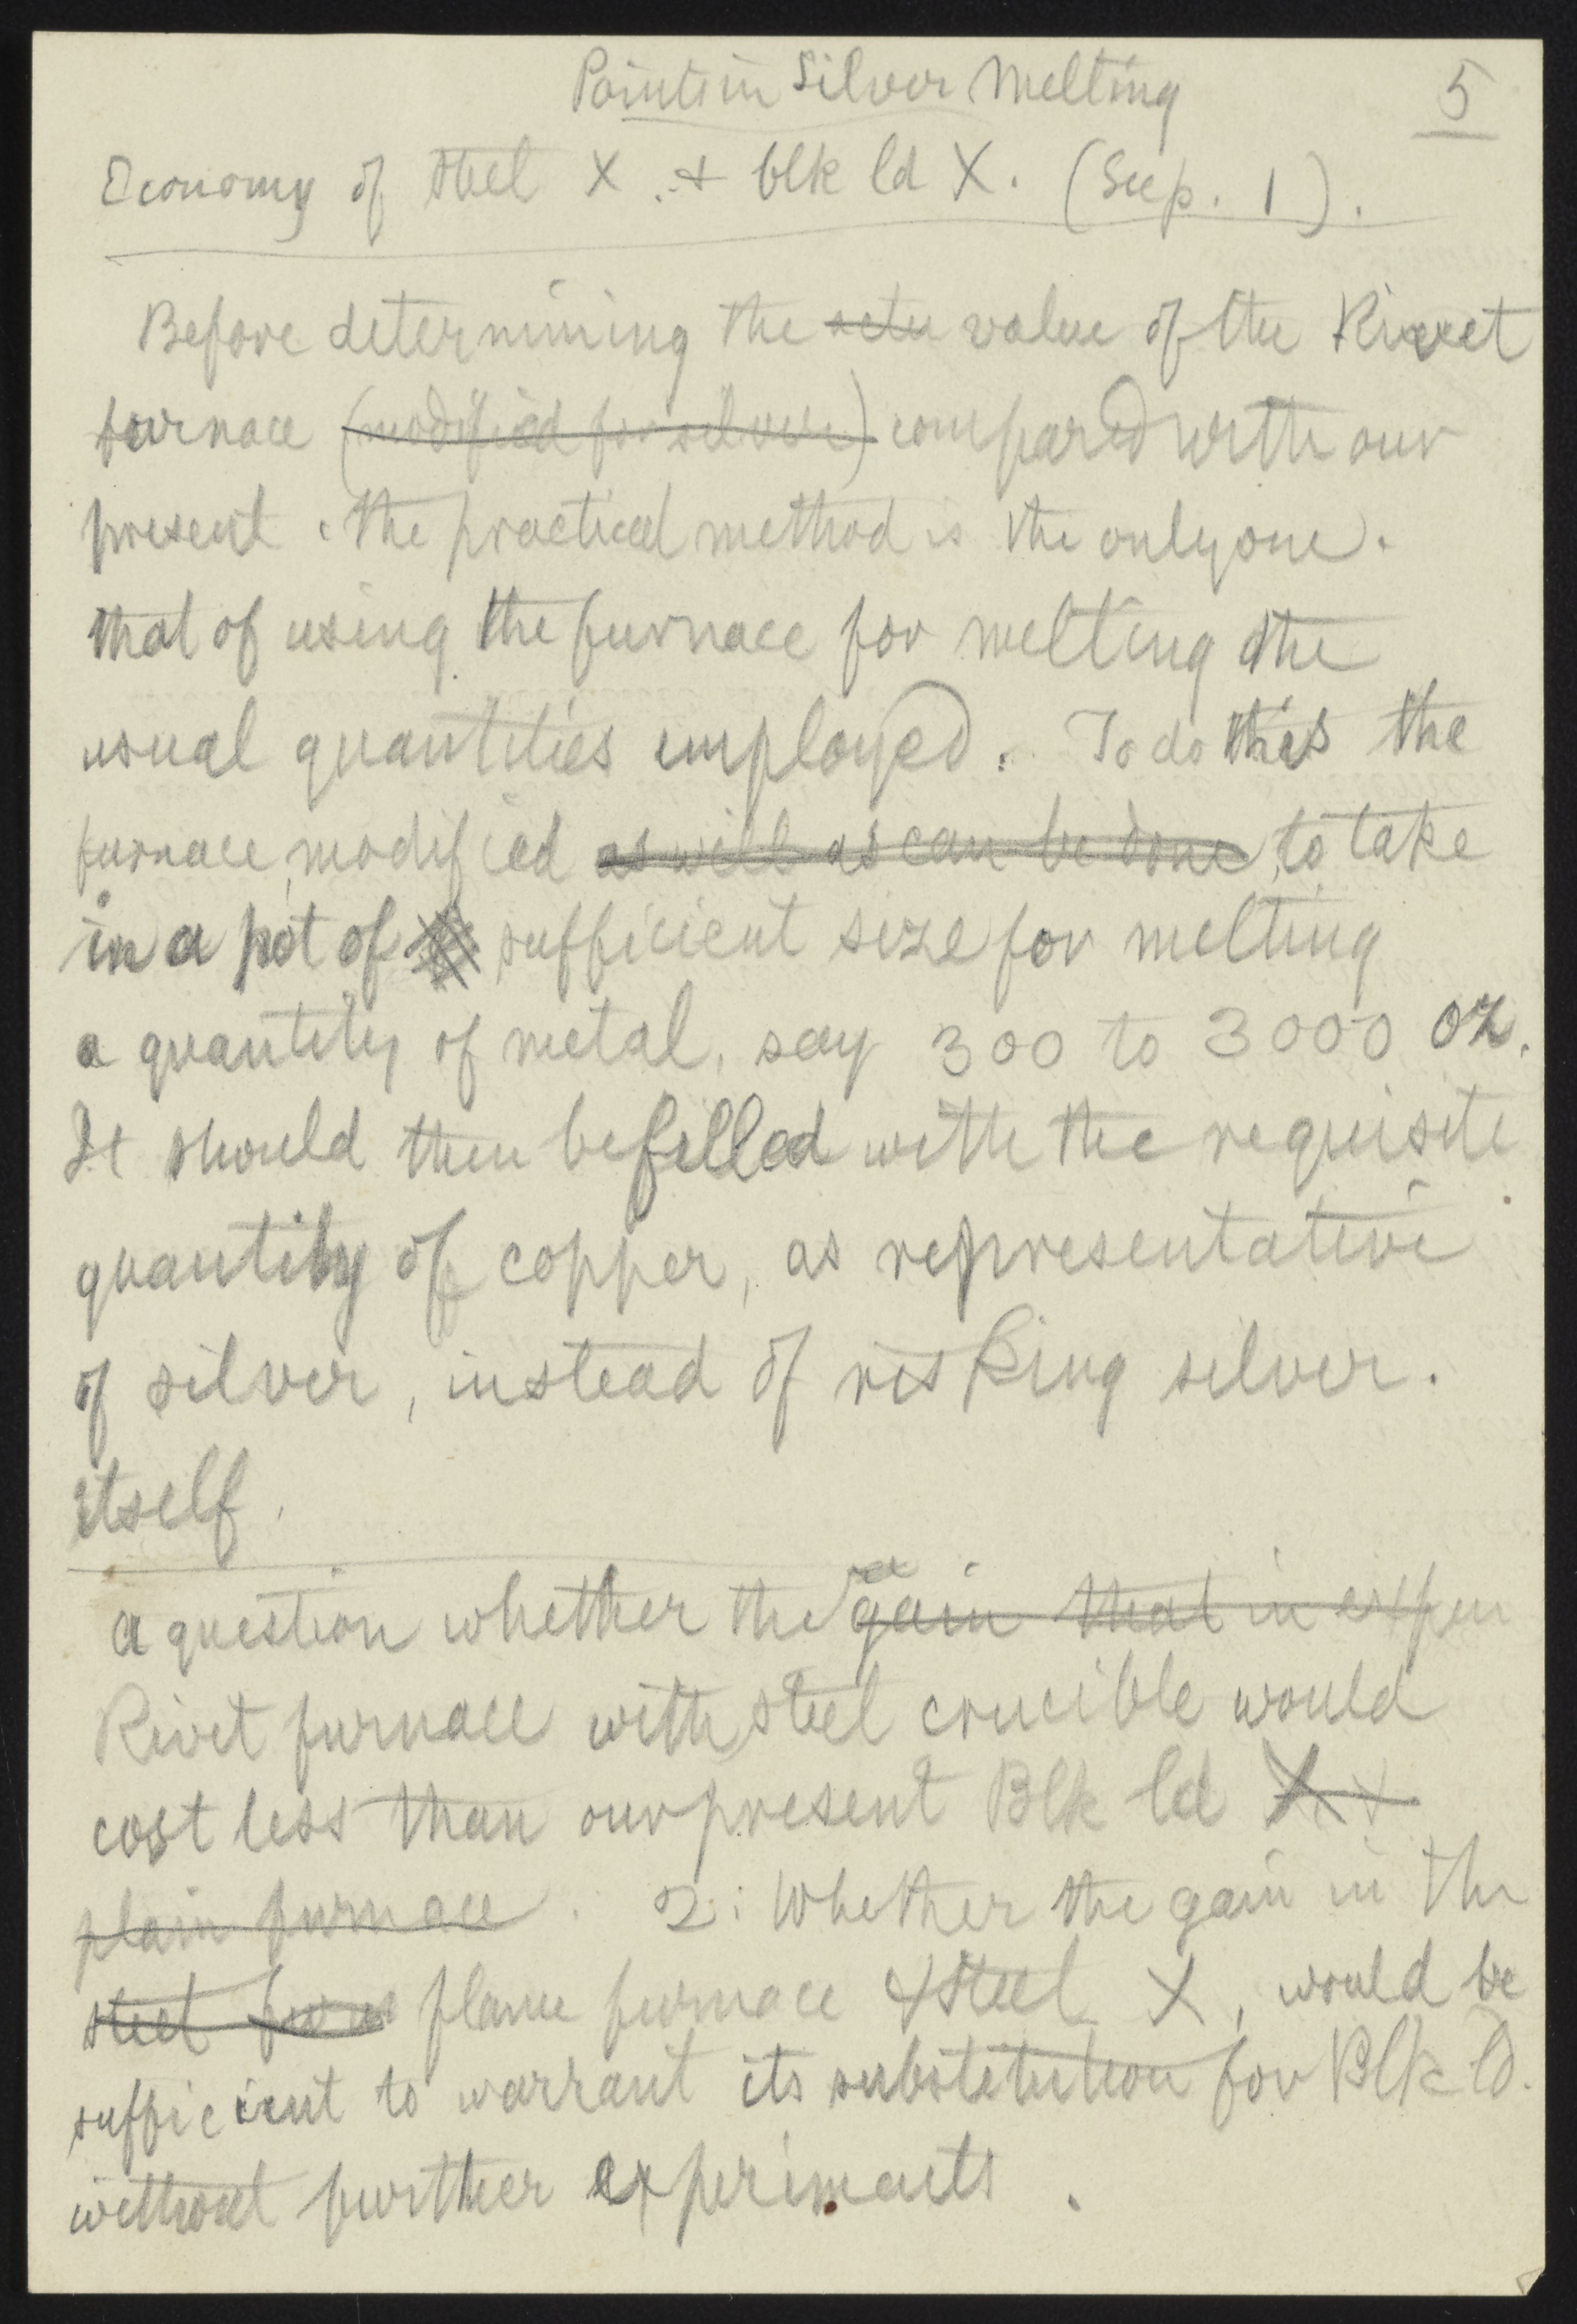 Points in Silver Melting 5
Economy of steel X. + blk ld X. (See p. 1).
Before determining the value of the Rivet
furnace (modified for silver) compared with our
present. The practical method is the only one.
that of using the furnace for melting the
usual quantities employed. To do this the
furnace, modified as well as can be done to take
in a pot of sufficient size for melting
a quantity of metal, say 300 to 3000 oz.
It should then be filled with the requisite
quantity of copper, as representative
of silver, instead of risking silver.
itself.
a question whether the gain that in expen
Rivet furnace with steel crucible would
cost less than our present Blk ld X
plain furnace. 2: Whether the gain in the
steel furnace furnace & steel X, would be
sufficient to warrant its substitution for Blk ld.
without further experiments.